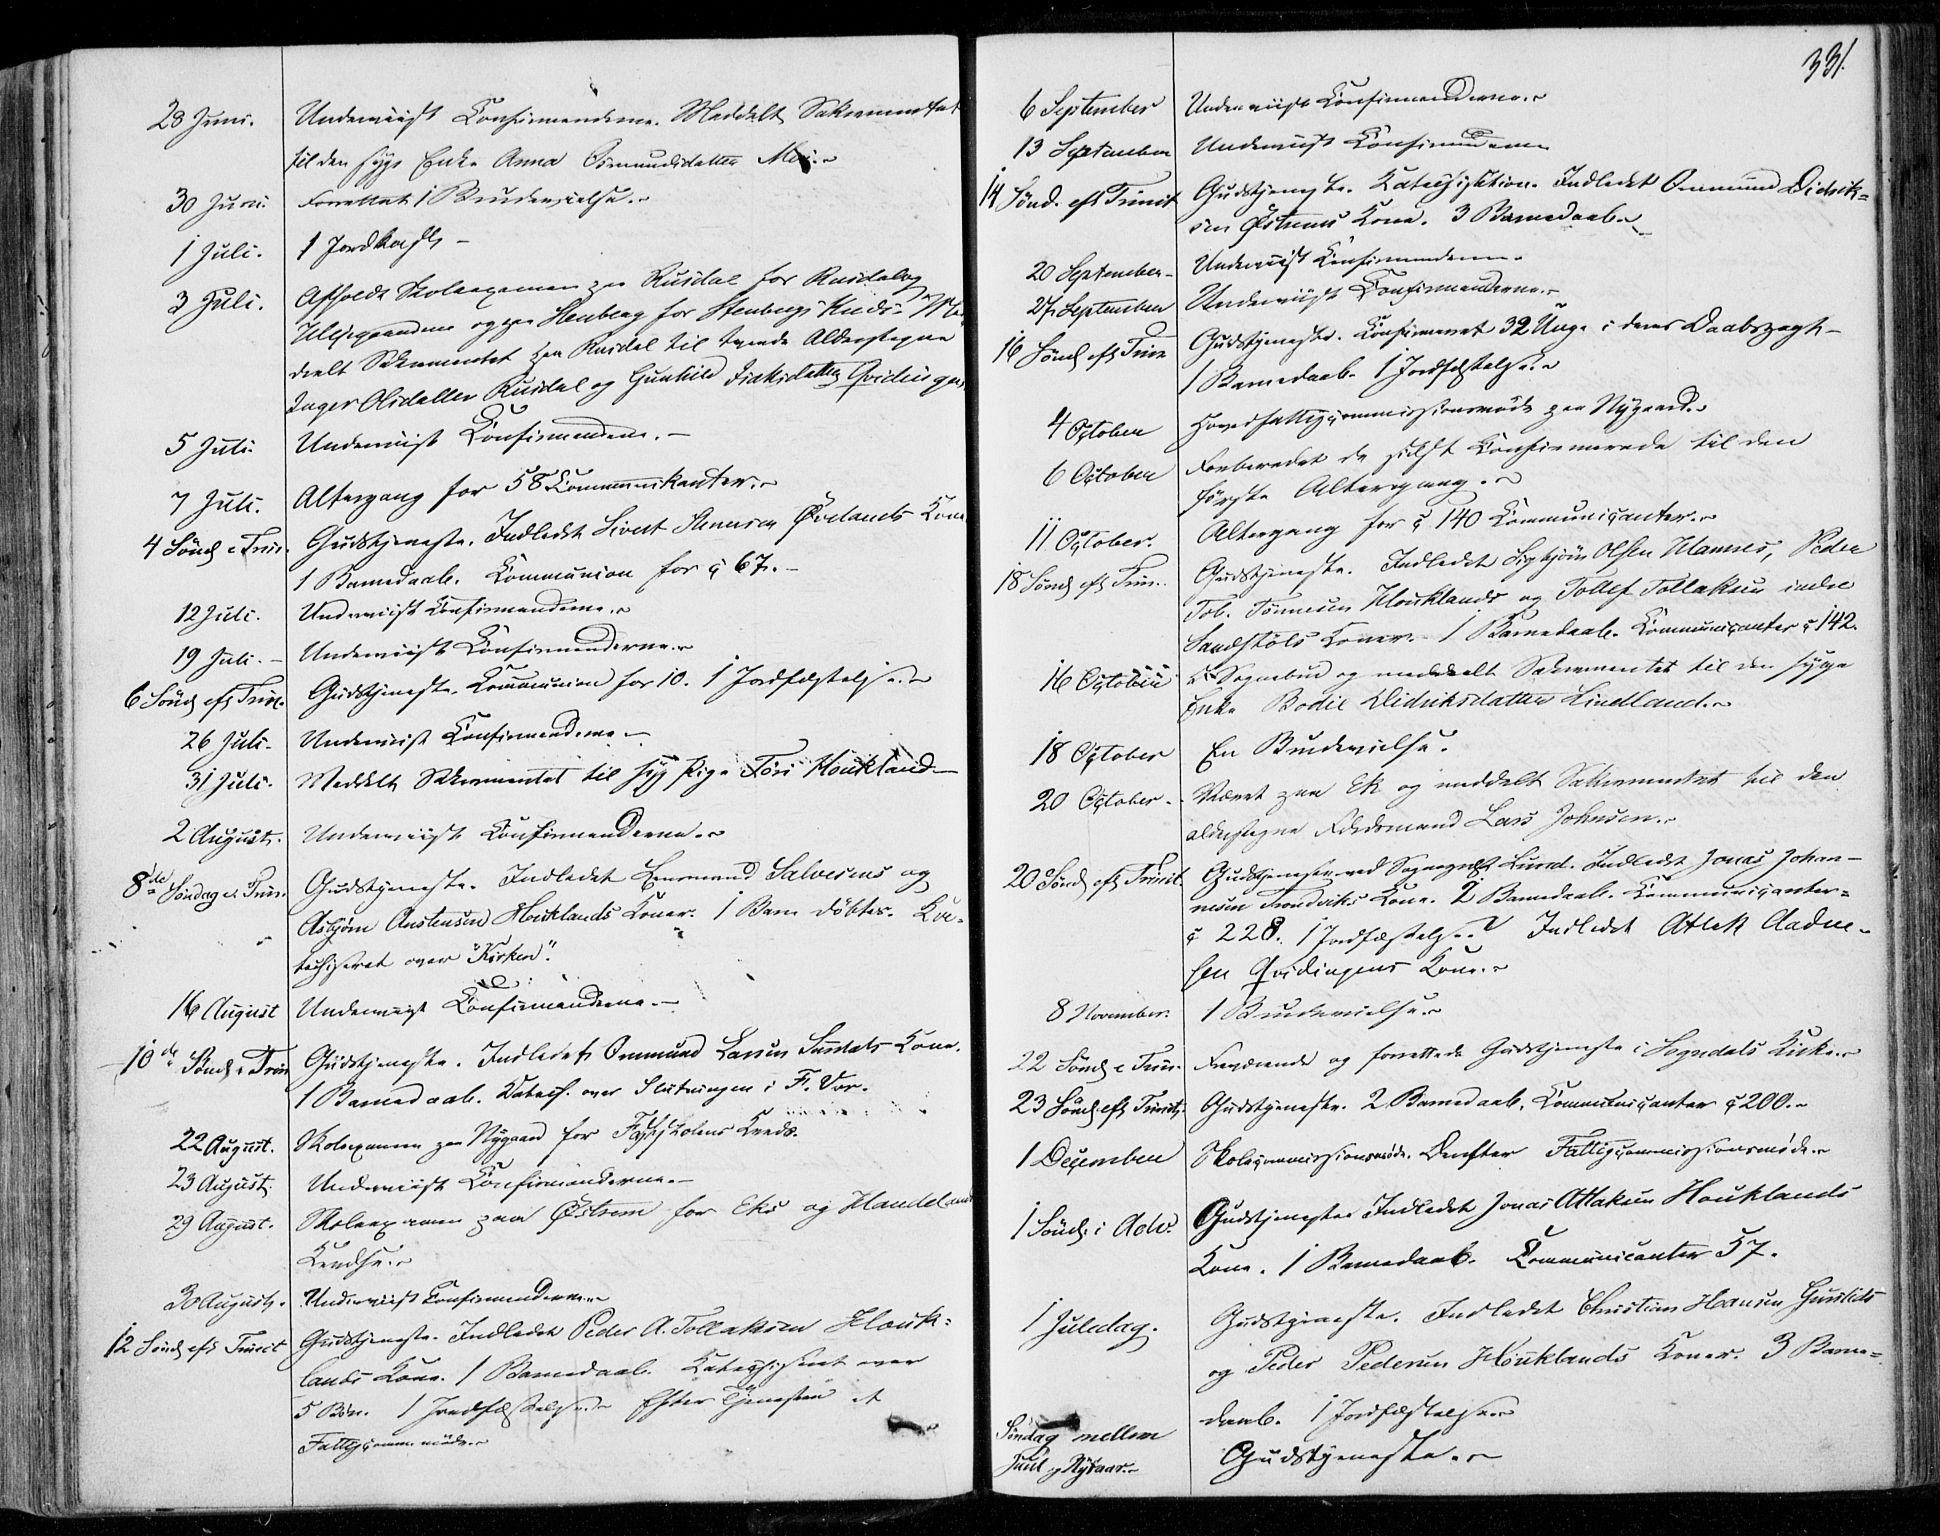 28 Juni. Underviist Confirmanderne. Meddelt Sakramentet
til den syge Enke Anna Osmundsdatter Moi.
30 Juni. Forrettet 1 Brudevielse.
1 Juli. 1 Jordkast
3 Juli. Afholdt Skoleexamen paa Rusdal for Rusdal og
og paa Stenberg for Stenbergs Kreds. Med-
deelt Sakramentet paa Rusdal til tvende Alderstegne
Inger Olsdatter Rusdal og Gunhild Qvidingen
5 Juli. Underviist Confirmanderne.
7 Juli. Altergang for 58 Communikanter.
4 Sönd e Trin. Gudstjeneste. Indledet Sivert Øvelands Kone
1 Barnedaab. Communion for 67.
12 Juli. Underviist Confirmanderne.
19 Juli. Underviist Confirmanderne.
6 Sönd eft Trin. Gudstjeneste. Communion for 10. 1 Jordfæstelse.
26 Juli. Underviist Confirmanderne
31 Juli. Meddelt Sakramentet til syg Pige Töri Houkland
2 August. Underviist Confirmanderne.
8de Söndag e. Trin. Gudstjeneste. Indledet Salvesens og
Asbjørn Austensen Houklands Koner. 1 Barn döbtes. Ka-
techiseret over "Kirken".
16 August Underviist Confirmanderne.
10de Sönd e Trin Gudstjeneste. Indledet Ommund Larsen Kone.
1 Barnedaab. Katech. over Slutningen i F. Vor.
22 August. Skoleexamen paa Nygaard for Kreds.
23 August. Underviist Confirmanderne.
29 August. Skoleexamen paa Østrem for Eks og Haukland
Kredse.
30 August. Underviist Confirmanderne
12 Sönd eft Trinit Gudstjeneste. Indledet Peder A. Tollaksen Houk-
lands Kone. 1 Barnedaab. Katechiseret over
5 Bön. 1 Jordfæstelse. Efter Tjenesten et
Fattigcomm. møde.
331.
6 September Underviist Confirmanderne.
13 September Underviist Confirmanderne
14 Sönd. eft Trinit Gudstjeneste. Katechisation. Indledet Ommund Didrik-
sen Østrems Kone. 3 Barnedaab.
20 September Underviist Confirmanderne.
27 September Underviist Confirmanderne.
16 Sönd eft Trin Gudstjeneste. Confirmeret 32 Unge i deres Daabspagt
1 Barnedaab. 1 Jordfæstelse.
4 October Hovedfattigcommissionsmöde paa Nygaard.
6 October Forberedet de sidst Confirmerede til den
förste Altergang.
11 October. Altergang for 140 Communicanter.
18 Sönd eft Trin. Gudstjeneste. Indledet Sigbjörn Olsen Peder
Tob. Tönnesen Houklands og Tollef Tollaksen indre
Sandstöls Koner. 1 Barnedaab. Communicanter 142.
16 October Sognebud og meddeelt Sakramentet til den syge
Enke Bodil Didriksdatter Lindland.
18 October En Brudevielse.
20 October. Været paa Ek og meddelt Sakramentet til den
alderstegne Lars Johnsen.
20 Sönd eft Trinit. Gudstjeneste ved Lund. Indledet Jonas Johan-
nesen Kone. 2 Barnedaab. Communicanter
228. 1 Jordfæstelse. Indledet Atlak Aadne-
sen Qvidingens Kone.
8 November. 1 Brudevielse.
22 Sönd e Trin. Fraværende og forrettede Gudstjeneste i Sogndals Kirke.
23 Sönd eft Trinit. Gudstjeneste. 2 Barnedaab. Communicanter 200.
1 December Skolecommissionsmöde. Derefter Fattigcommissionsmöde.
1 Sönd. i Adv. Gudstjeneste Indledet Jonas Atlaksen Houklands
Kone. 1 Barnedaab. Communicanter 57.
1 Juledag. Gudstjeneste. Indledet Christian Hansen
og Peder Pedersen Houklands Koner. 3 Barne-
daab. 1 Jordfæstelse
Söndag mellem
Juul og Nytaar. Gudstjeneste.